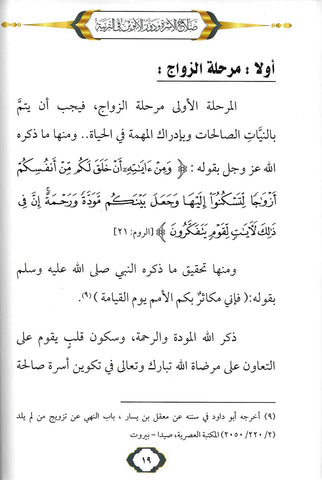 صلاح الأسرة ودور الأبوين في التربية
أولا : مرحلة الزواج :
المرحلة الأولى مرحلة الزواج، فيجب أن يتمَّ
بالنيَّاتِ الصالحات وبإدراك المهمة في الحياة.. ومنها ما ذكره
الله عز وجل بقوله : ﴿ وَمِنْ ءَايَٰتِهِۦٓ أَنْ خَلَقَ لَكُم مِّنْ أَنفُسِكُمْ
أَزْوَٰجًا لِّتَسْكُنُوٓا۟ إِلَيْهَا وَجَعَلَ بَيْنَكُم مَّوَدَّةً وَرَحْمَةً إِنَّ فِى
ذَٰلِكَ لَءَايَٰتٍ لِّقَوْمٍ يَتَفَكَّرُونَ ﴾ [الروم: ٢١]
ومنها تحقيق ما ذكره النبي صلى الله عليه وسلم
بقوله:( فإني مكاثرٌ بكم الأمم يوم القيامة )(٩).
ذكر الله المودة والرحمة، وسكون قلبٍ يقوم على
التعاون على مرضاة الله تبارك وتعالى في تكوين أسرة صالحة
(٩) أخرجه أبو داود في سننه عن معقل بن يسار ، باب النهي عن تزويج من لم يلد
(٢/ ٢٢٠/ ٢٠٥٠) المكتبة العصرية، صيدا – بيروت
١٩